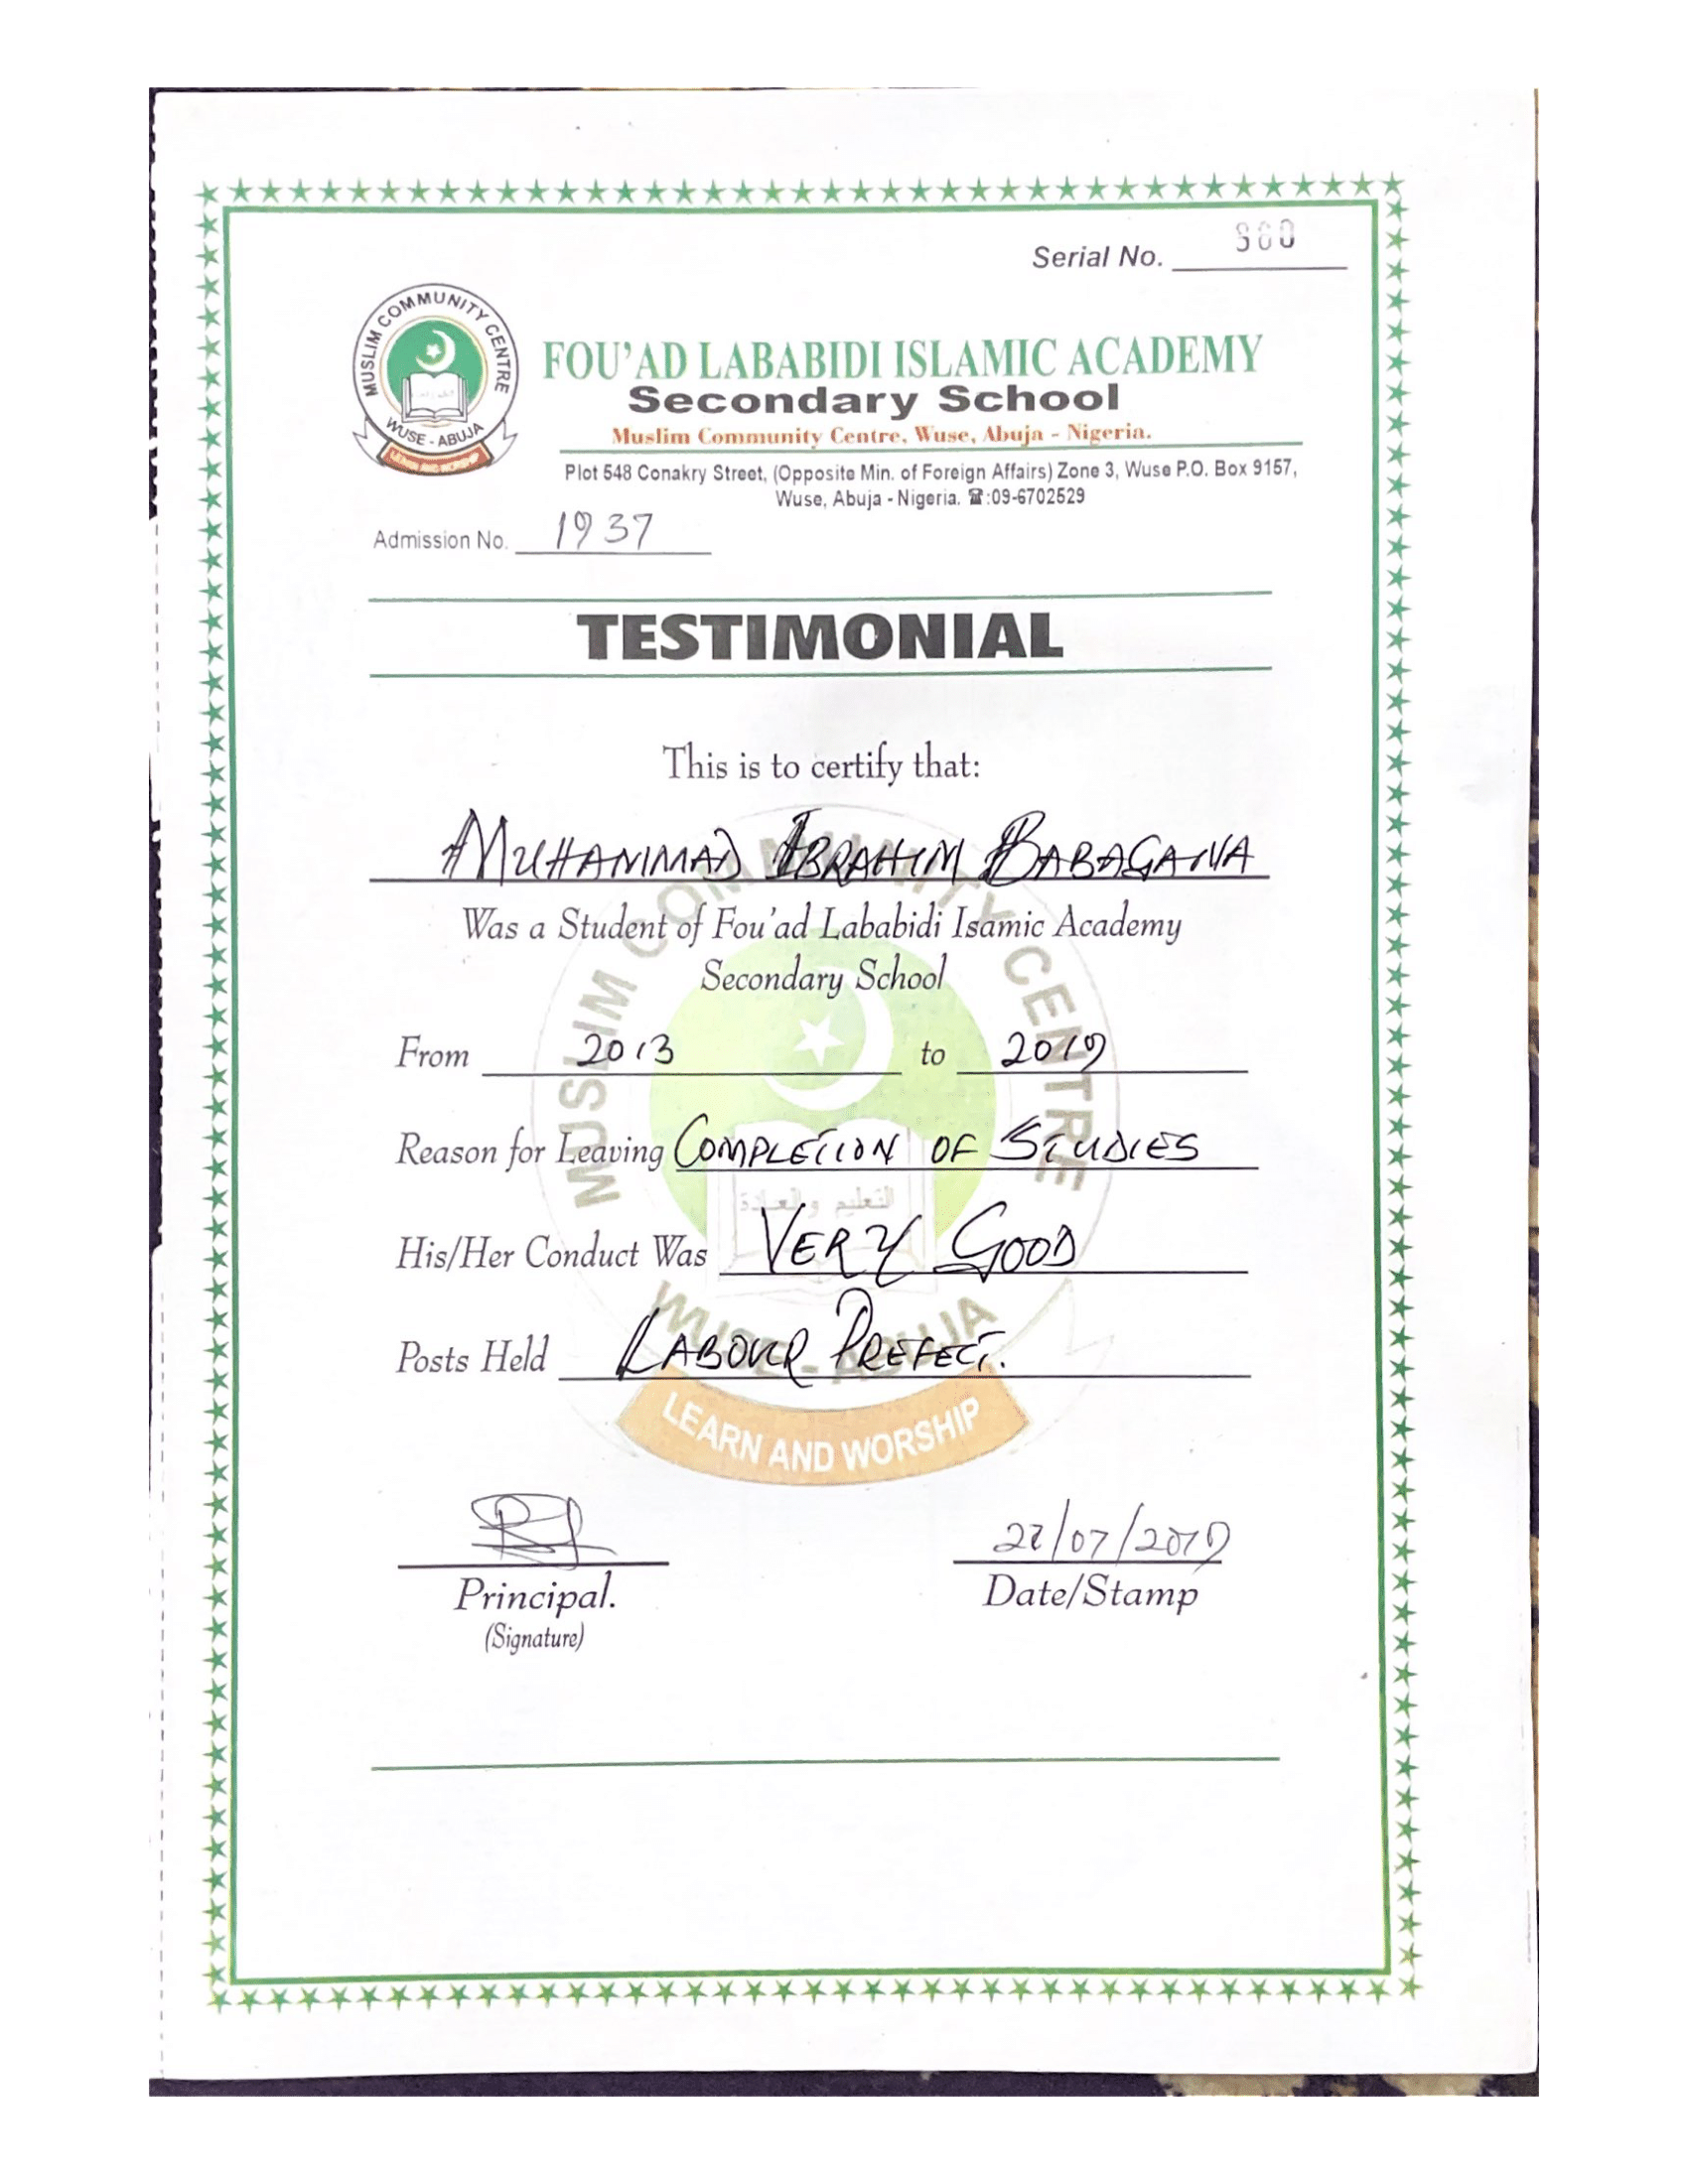 Serial No. 360
MUSLIM COMMUNITY CENTRE
WUSE - ABUJA
FOU'AD LABABIDI ISLAMIC ACADEMY
Secondary School
Muslim Community Centre, Wuse, Abuja - Nigeria.
Plot 548 Conakry Street, (Opposite Min. of Foreign Affairs) Zone 3, Wuse P.O. Box 9157,
Wuse, Abuja - Nigeria. ☎:09-6702529
Admission No. 1937
TESTIMONIAL
This is to certify that:
MUHAMMAD IBRAHIM BABAGANA
Was a Student of Fou'ad Lababidi Isamic Academy
Secondary School
From 2013 to 2019
Reason for Leaving COMPLETION OF STUDIES
His/Her Conduct Was VERY GOOD
Posts Held LABOUR PREFECT.
MUSLIM COMMUNITY CENTRE
التعليم والعبادة
WUSE - ABUJA
LEARN AND WORSHIP
22/07/2019
Principal. Date/Stamp
(Signature)